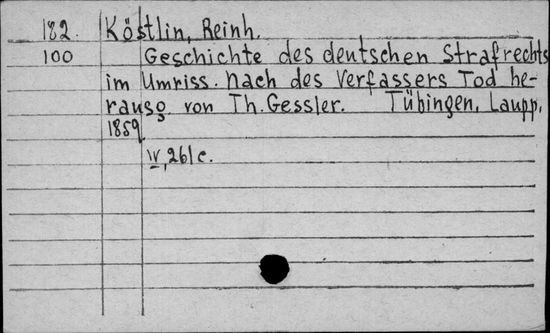 182. Köstlin, Reinh.
100 Geschichte des deutschen Strafrechts
im Umriss. Nach des Verfassers Tod he-
rausg. von Th. Gessler. Tübingen, Laupp,
1859
IV, 261c.